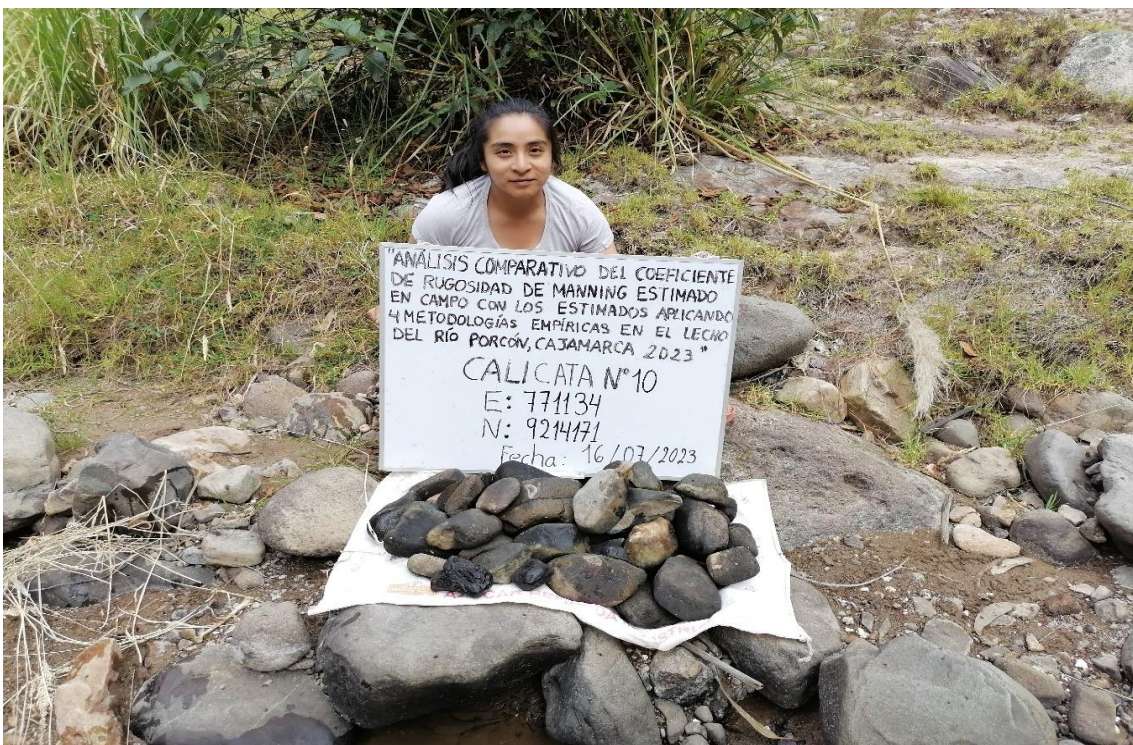 "ANÁLISIS COMPARATIVO DEL COEFICIENTE
DE RUGOSIDAD DE MANNING ESTIMADO
EN CAMPO CON LOS ESTIMADOS APLICANDO
4 METODOLOGÍAS EMPÍRICAS EN EL LECHO
DEL RÍO PORCÓN, CAJAMARCA 2023"
CALICATA N°10
E: 771134
N: 9214171
Fecha: 16/07/2023